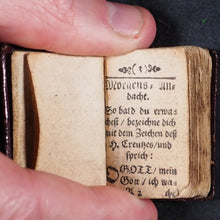 ( 3 )
Morgens-An-
dacht.
So bald du erwa-
chest / bezeichne dich
mit dem Zeichen deß
H. Creutzes / und
sprich:
O GOTT / mein
Gott / ich wa-
A 2 che